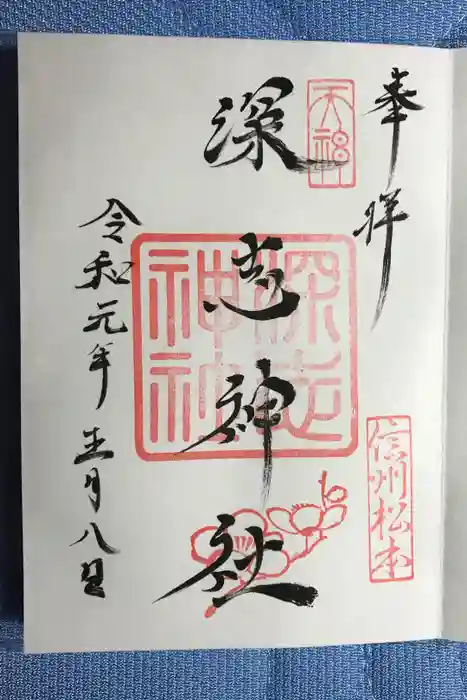 奉拝
信州松本
深志神社
深志
神社
令和元年五月八日